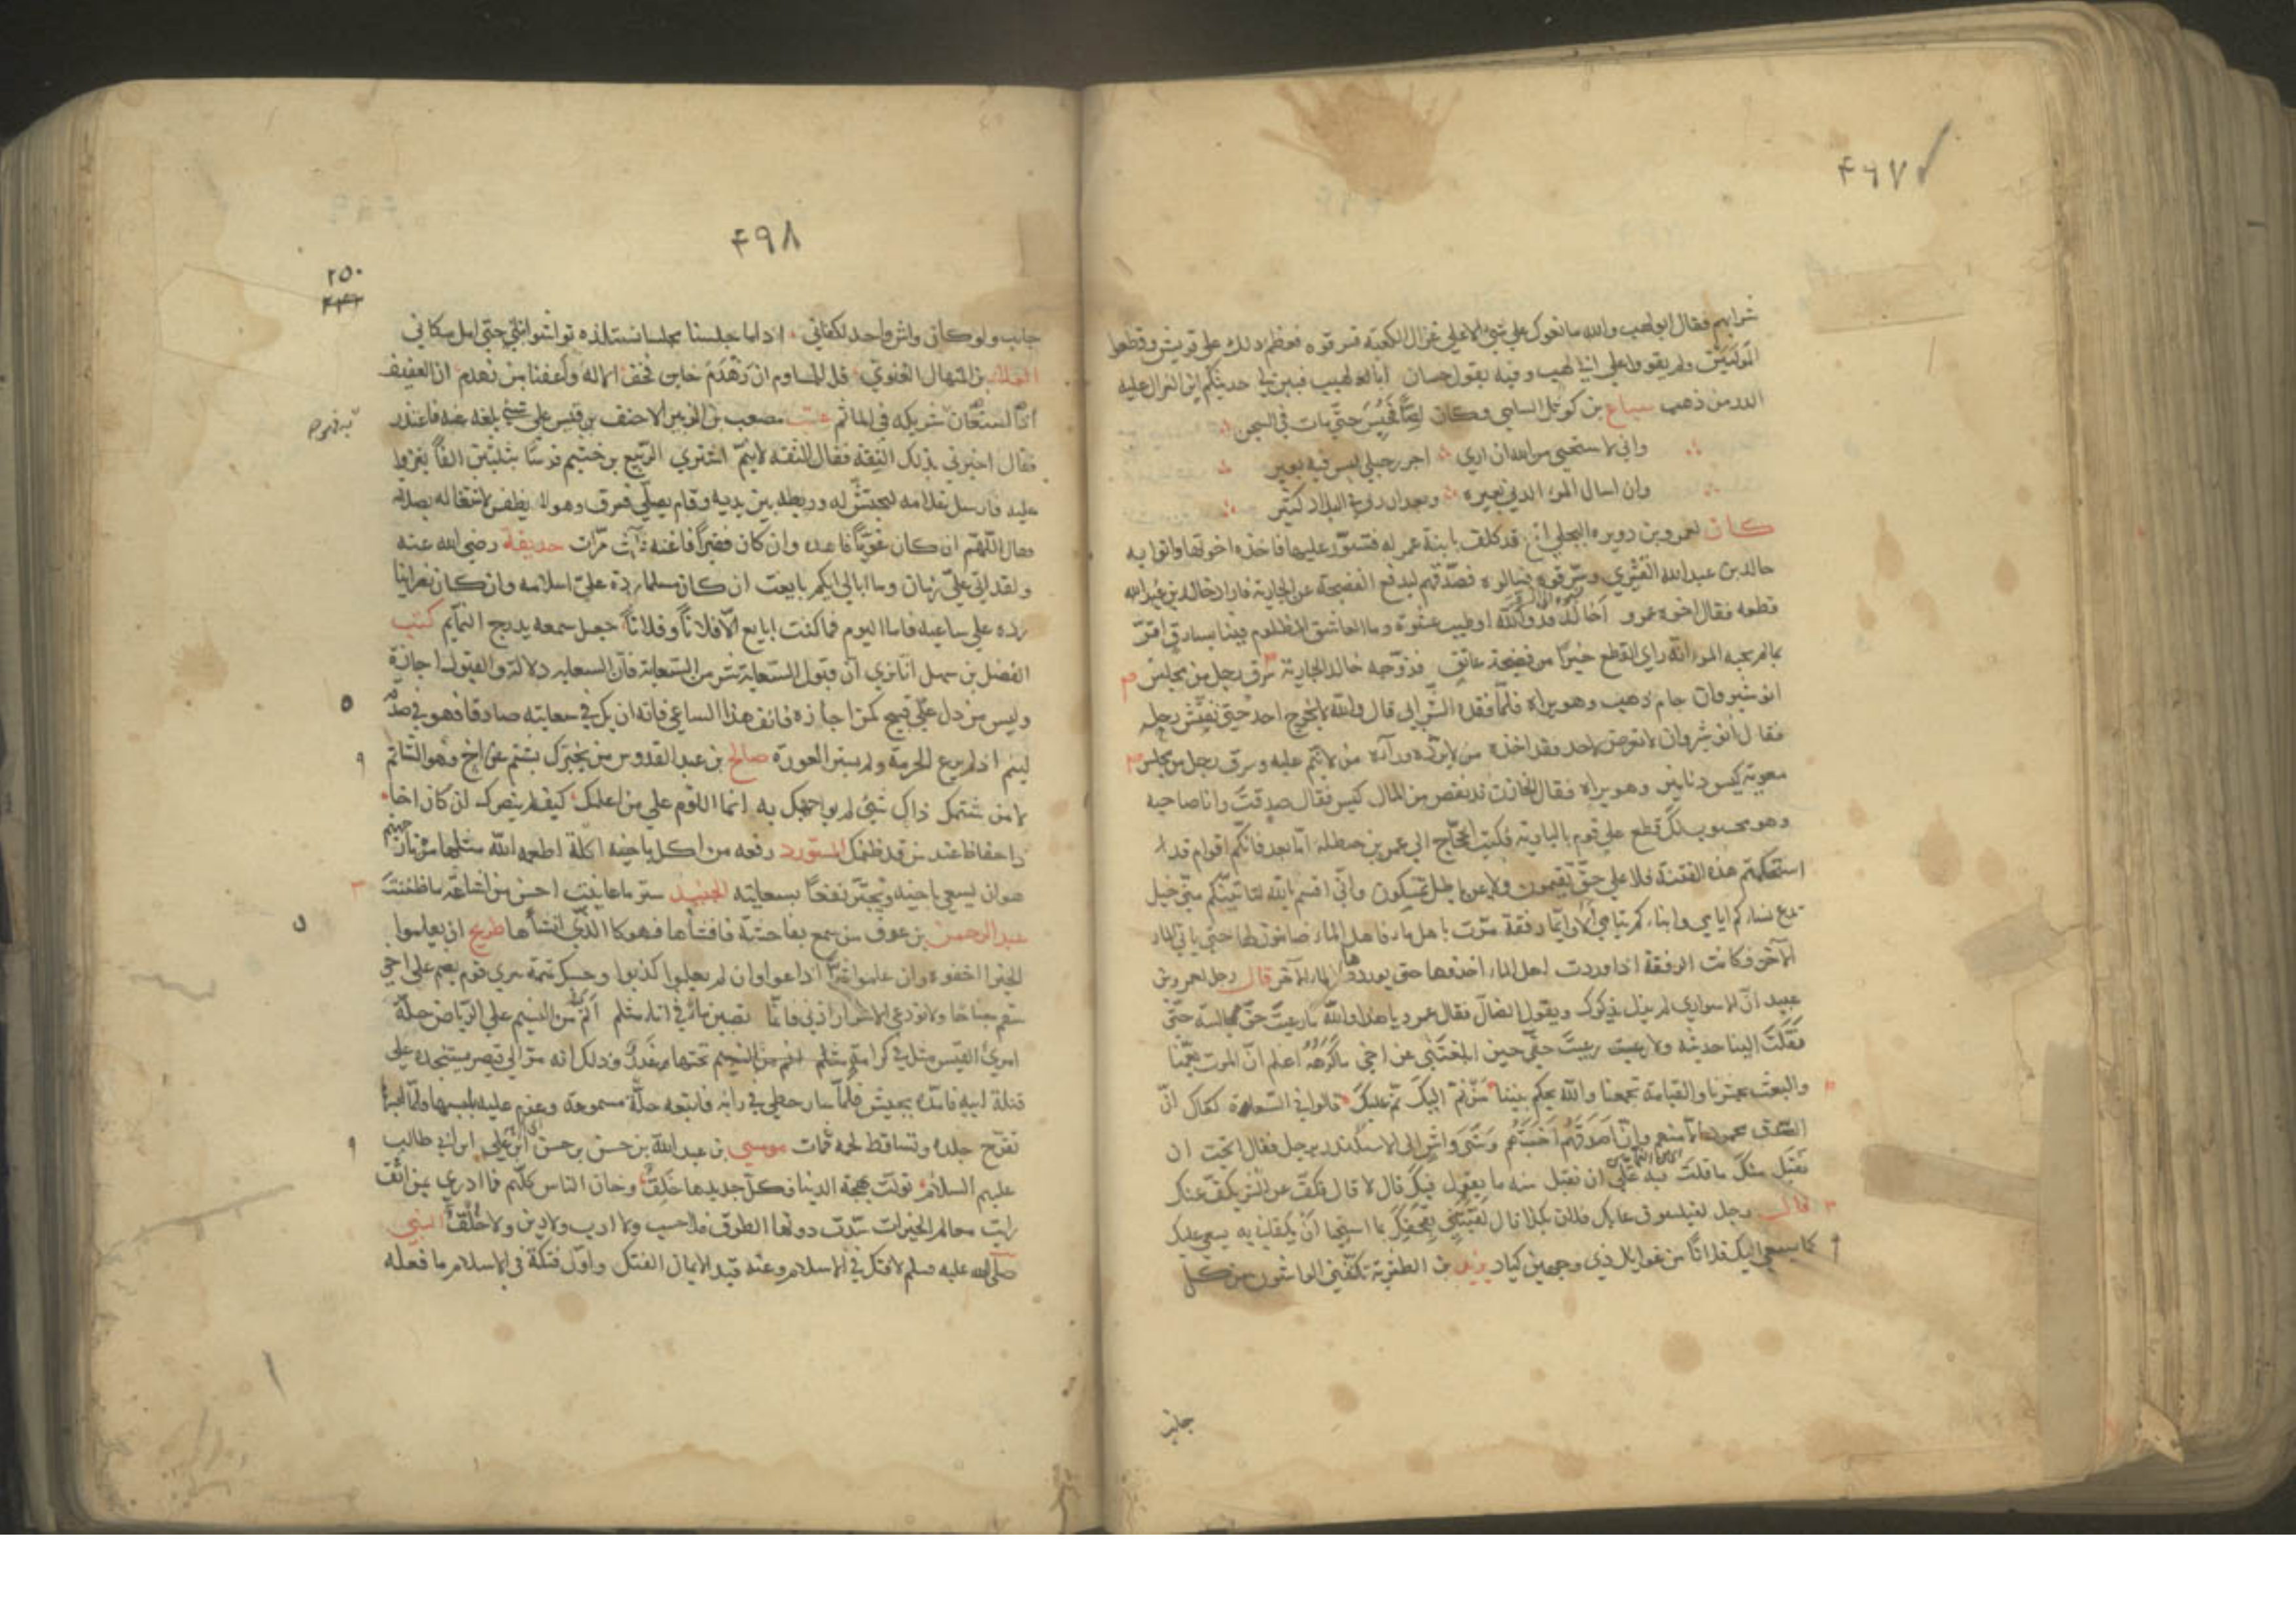 ٤٩٧
شرابهم فقال ابو لهب والله ما نعوك على شيء الا على غزال الكعبة فسرقوه فعظم ذلك على قريش وقطعوا
المؤتمين ولم يقووا على ابي لهب وفيه يقول حسان ابا لهب فبين لي حديثكم اين الغزال عليه
الدر من ذهب سباع بن كوثل السلمي وكان لصا فحبس حتى مات في السجن
واني لاستحيي من الله ان ارى اجرر حبلي ليس فيه بعير
وان اسال المرء الدني بعيره وبعران ربي في البلاد كثير
كان لعمرو بن دويرة البجلي اخ قد كلف بابنة عم له فتسور عليها فاخذه اخوتها واتوا به
خالد بن عبد الله القسري وسرقوه فسالوه فصدقهم ليدفع الفضيحة عن الجارية فاراد خالد بن عبد الله
قطعه فقال اخوه عمرو اخالد قد والله اوطيت عشوة وما العاشق المظلوم فينا بسارق اقر
بما لم يجنه المرء انه راى القطع خيرا من فضيحة عاتق فزوجه خالد الجارية سرق رجل من مجلس
انوشروان جام ذهب وهو يراه فلما فقده الشرابي قال والله لا يخرج احد حتى نفتش رحله
فقال انوشروان لا تعرض لاحد فقد اخذه من لا يرده ورآه من لا ينم عليه وسرق رجل من مجلس
معوية كيس دنانير وهو يراه فقال الخازن قد نقص من المال كيس فقال صدقت وانا صاحبه
وهو محسوب لك قطع على قوم بالبادية فكتب الحجاج الى عمر بن حنظلة اما بعد فانكم اقوام قد
استحكمتم هذه الفتنة فلا على حق تقيمون ولا عن باطل تمسكون واني اقسم بالله لتاتينكم مني خيل
تدع نساءكم ايامى وابناءكم يتامى الا وايما رفقة مرت باهل ماء فاهل الماء ضامنون لها حتى ياتي الماء
الآخر فكانت الرفقة اذا وردت اهل الماء اخذوها حتى يوردوها الماء الآخر قال رجل لعمرو بن
عبيد ان الاسواري لم يزل يذكرك ويقول الضال فقال عمرو يا هذا والله ما رعيت حق مجالسته حتى
نقلت الينا حديثه ولا رعيت حقي حين ابلغتني عن اخي ما اكرهه اعلم ان الموت يعمنا
والبعث يحشرنا والقيامة تجمعنا والله يحكم بيننا من نم اليك نم عليك قالوا في السعاة كفاك ان
الصدق محمود الا منهم وان اصدقهم اخبثهم وشى واش الى الاسكندر برجل فقال اتحب ان
نقبل منك ما قلت فيه على ان نقبل منه ما يقول فيك قال لا قال فكف عن الشر يكف عنك
قال رجل لفيلسوف عابك فلان بكذا قال لقيتني بقحتك بما استحيا ان يلقاني به يسعى عليك
كما يسعى اليك فلا تامن غوائل ذي وجهين كياد يزيد بن الطثرية تكنفني الواشون من كل
جانب
٤٩٨
٢٥٠
جانب ولو كان واش واحد لكفاني اذا ما جلسنا مجلسا نستلذه تواشوا بنا حتى امل مكاني
العلاء بن المنهال الغنوي
عتب مصعب بن الزبير الاحنف بن قيس على شيء بلغه عنه فاعتذر
فقال اخبرني بذلك الثقة فقال الثقة لا ينم اشترى الربيع بن خثيم فرسا بثلثين الفا يغزو
عليه فارسل غلامه ليحتش له وربطه بين يديه وقام يصلي فسرق وهو لا ينطفر لاشتغاله بصلاته
فقال اللهم ان كان غويا فاهده وان كان فقيرا فاغنه ثلاث مرات حذيفة رضي الله عنه
ولقد اتى علي زمان وما ابالي ايكم بايعت ان كان مسلما رده علي اسلامه وان كان نصرانيا
رده علي ساعيه فاما اليوم فما كنت ابايع الا فلانا وفلانا جعل سمعه يدرج النمايم كتب
الفضل بن سهل انا نرى ان قبول السعاية شر من السعاية فان السعاية دلالة والقبول اجازة
وليس من دل على قبيح كمن اجازه فانف هذا الساعي فانه ان يك في سعايته صادقا فهو في صدقه
لئيم اذ لم يرع الحرمة ولم يستر العورة صالح بن عبد القدوس من يخبرك بشتم عن اخ فهو الشاتم
لا من شتمك ذاك شيء لم يواجهك به انما اللوم على من اعلمك كيف لم ينصرك ان كان اخا
ذا حفاظ عند من قد ظلمك المستورد رفعه من اكل باخيه اكلة اطعمه الله مثلها من نار جهنم
هو ان يسعى باخيه ويجتر نفعا بسعايته الجنيد ستر ما عاينت احسن من اشاعة ما ظننت
عبد الرحمن بن عوف من سمع بفاحشة فافشاها فهو كالذي انشأها طريح ان يعلموا
الخير اخفوه وان علموا شرا اذاعوا وان لم يعلموا كذبوا
انم من النسيم على الرياض حلة
امرئ القيس مثل في كرامة وذلك انه سار الى قيصر يستنجده على
قتلة ابيه فامده بجيش فلما سار فاتبعه حلة مسمومة وعزم عليه بلبسها فلما لبسها
تقرح جلده وتساقط لحمه فمات موسى بن عبد الله بن حسن بن حسن بن علي ابن ابي طالب
عليهم السلام تولت بهجة الدنيا فكل جديدها خلق وخان الناس كلهم فما ادري بمن اثق
رايت معالم الخيرات سدت دونها الطرق فلا حسب ولا ادب ولا دين ولا خلق النبي
صلى الله عليه وسلم لا فتك في الاسلام وعنه قيد الايمان الفتك واول فتكة في الاسلام ما فعله